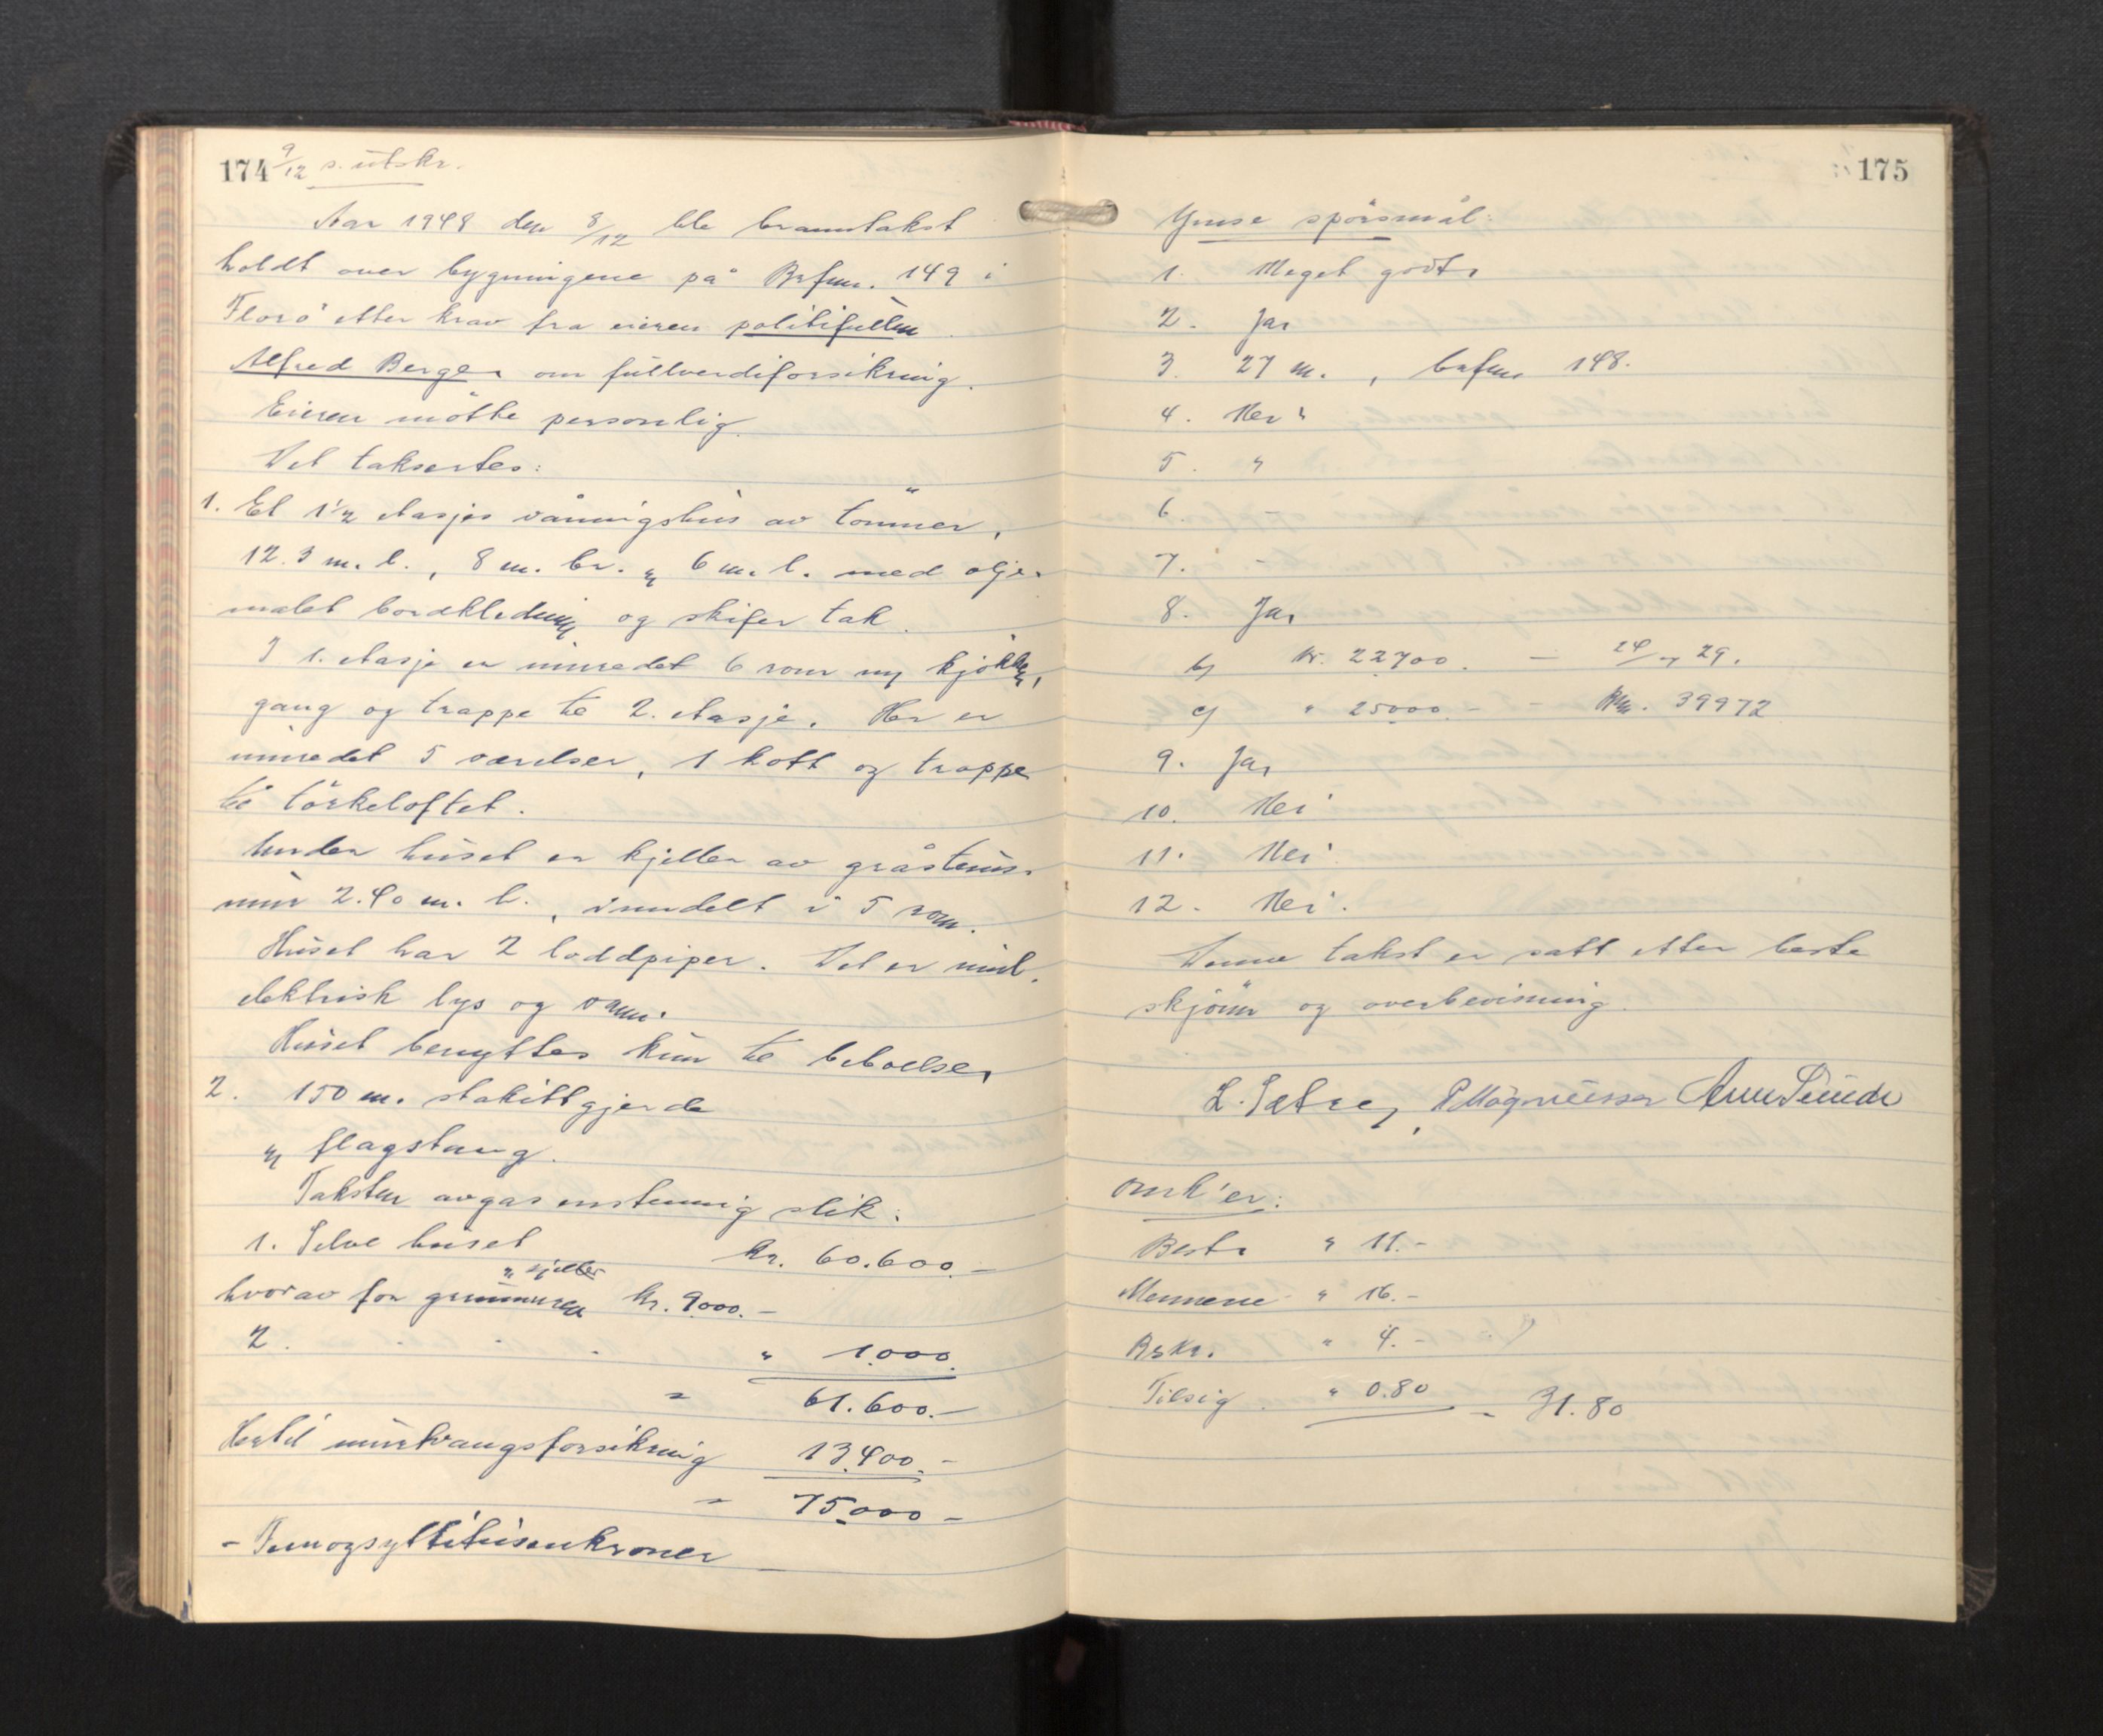 174 9/12 s. utskr.
Aar 1948 den 8/12 ble branntakst
holdt over bygningene på Brfnr. 149 i
Florö etter krav fra eieren politifullm
Alfred Berge, om fullverdiforsikring.
Eieren mötte personlig.
Det taksertes:
1. Et 1 1/2 etasjes våningshus av tömmer,
12.3 m. l., 8 m. br. og 6 m. h. med olje-
malet bordkledning og skifer tak.
I 1. etasje er innredet 6 rom og kjökken,
gang og trappe til 2. etasje. Her er
innredet 5 værelser, 1 kott og trappe
til törkeloftet.
Under huset er kjeller av gråstens-
mur 2.40 m. h., inndelt i 5 rom.
Huset har 2 loddpiper. Det er innl.
elektrisk lys og vann.
Huset benyttes kun til beboelse,
2. 150 m. stakittgjerde
og flagstang.
Taksten avgas enstemmig slik:
1. Selve huset kr. 60.600.-
og kjeller
hvorav for grunnmuren kr. 9.000.-
2. " 1.000.
= 61.600.-
Hertil murtvangsforsikring 13.400.-
= 75.000 -
- Femogsyttitusenkroner
175
Ymse spörsmål:
1. Meget godt,
2. Ja,
3. 27 m., brfnr 148.
4. Nei
5. "
6. -
7. -
8. Ja,
b) kr. 22700. - 24/ 29.
c) " 25000.- - 39972
9. Ja,
10. Nei
11. Nei
12. Nei.
Denne takst er satt etter beste
skjönn og overbevisning.
L. Sætre, P Magnussen Arne Sunde
Omk'er:
Best. " 11.-
Mennene " 16.-
Bskr. " 4.-
Tilsig. " 0.80 = 31.80